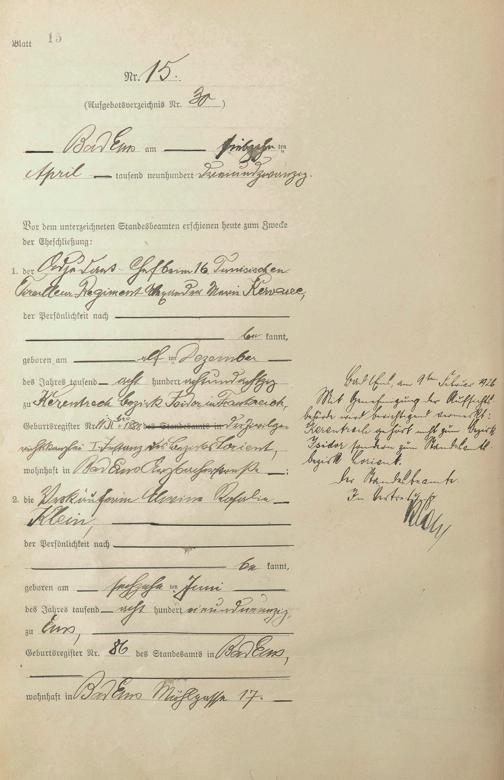 Blatt 15
Nr. 15.
(Aufgebotsverzeichnis Nr. 30)
Bad Ems am siebzehn ten
April tausend neunhundert dreiundzwanzig.
Vor dem unterzeichneten Standesbeamten erschienen heute zum Zwecke
der Eheschließung:
1. der Chef beim 16. Tunesischen
Tirailleur Regiment Alexander Marie Kervarec,
der Persönlichkeit nach
be kannt,
geboren am elf ten Dezember
des Jahres tausend acht hundert achtundachtzig
zu Kerentrech Bezirk Isidor in Frankreich,
Geburtsregister Nr. des Standesamts in der Zivilge-
richtskanzlei I. Instanz des Bezirks Lorient,
wohnhaft in Bad Ems ;
2. die Verkäuferin Rosalie
Klein,
der Persönlichkeit nach
be kannt,
geboren am sechzehn ten Juni
des Jahres tausend acht hundert vierundneunzig,
zu Ems,
Geburtsregister Nr. 86 des Standesamts in Bad Ems,
wohnhaft in Bad Ems Mühlgasse 17.
Bad Ems, am 9ten Februar 1926
Mit Genehmigung der Aufsichts-
behörde wird berichtigend vermerkt:
Kerentrech gehört nicht zum Bezirk
Isidor sondern zum Standesamts-
bezirk Lorient.
Der Standesbeamte
In Vertretung